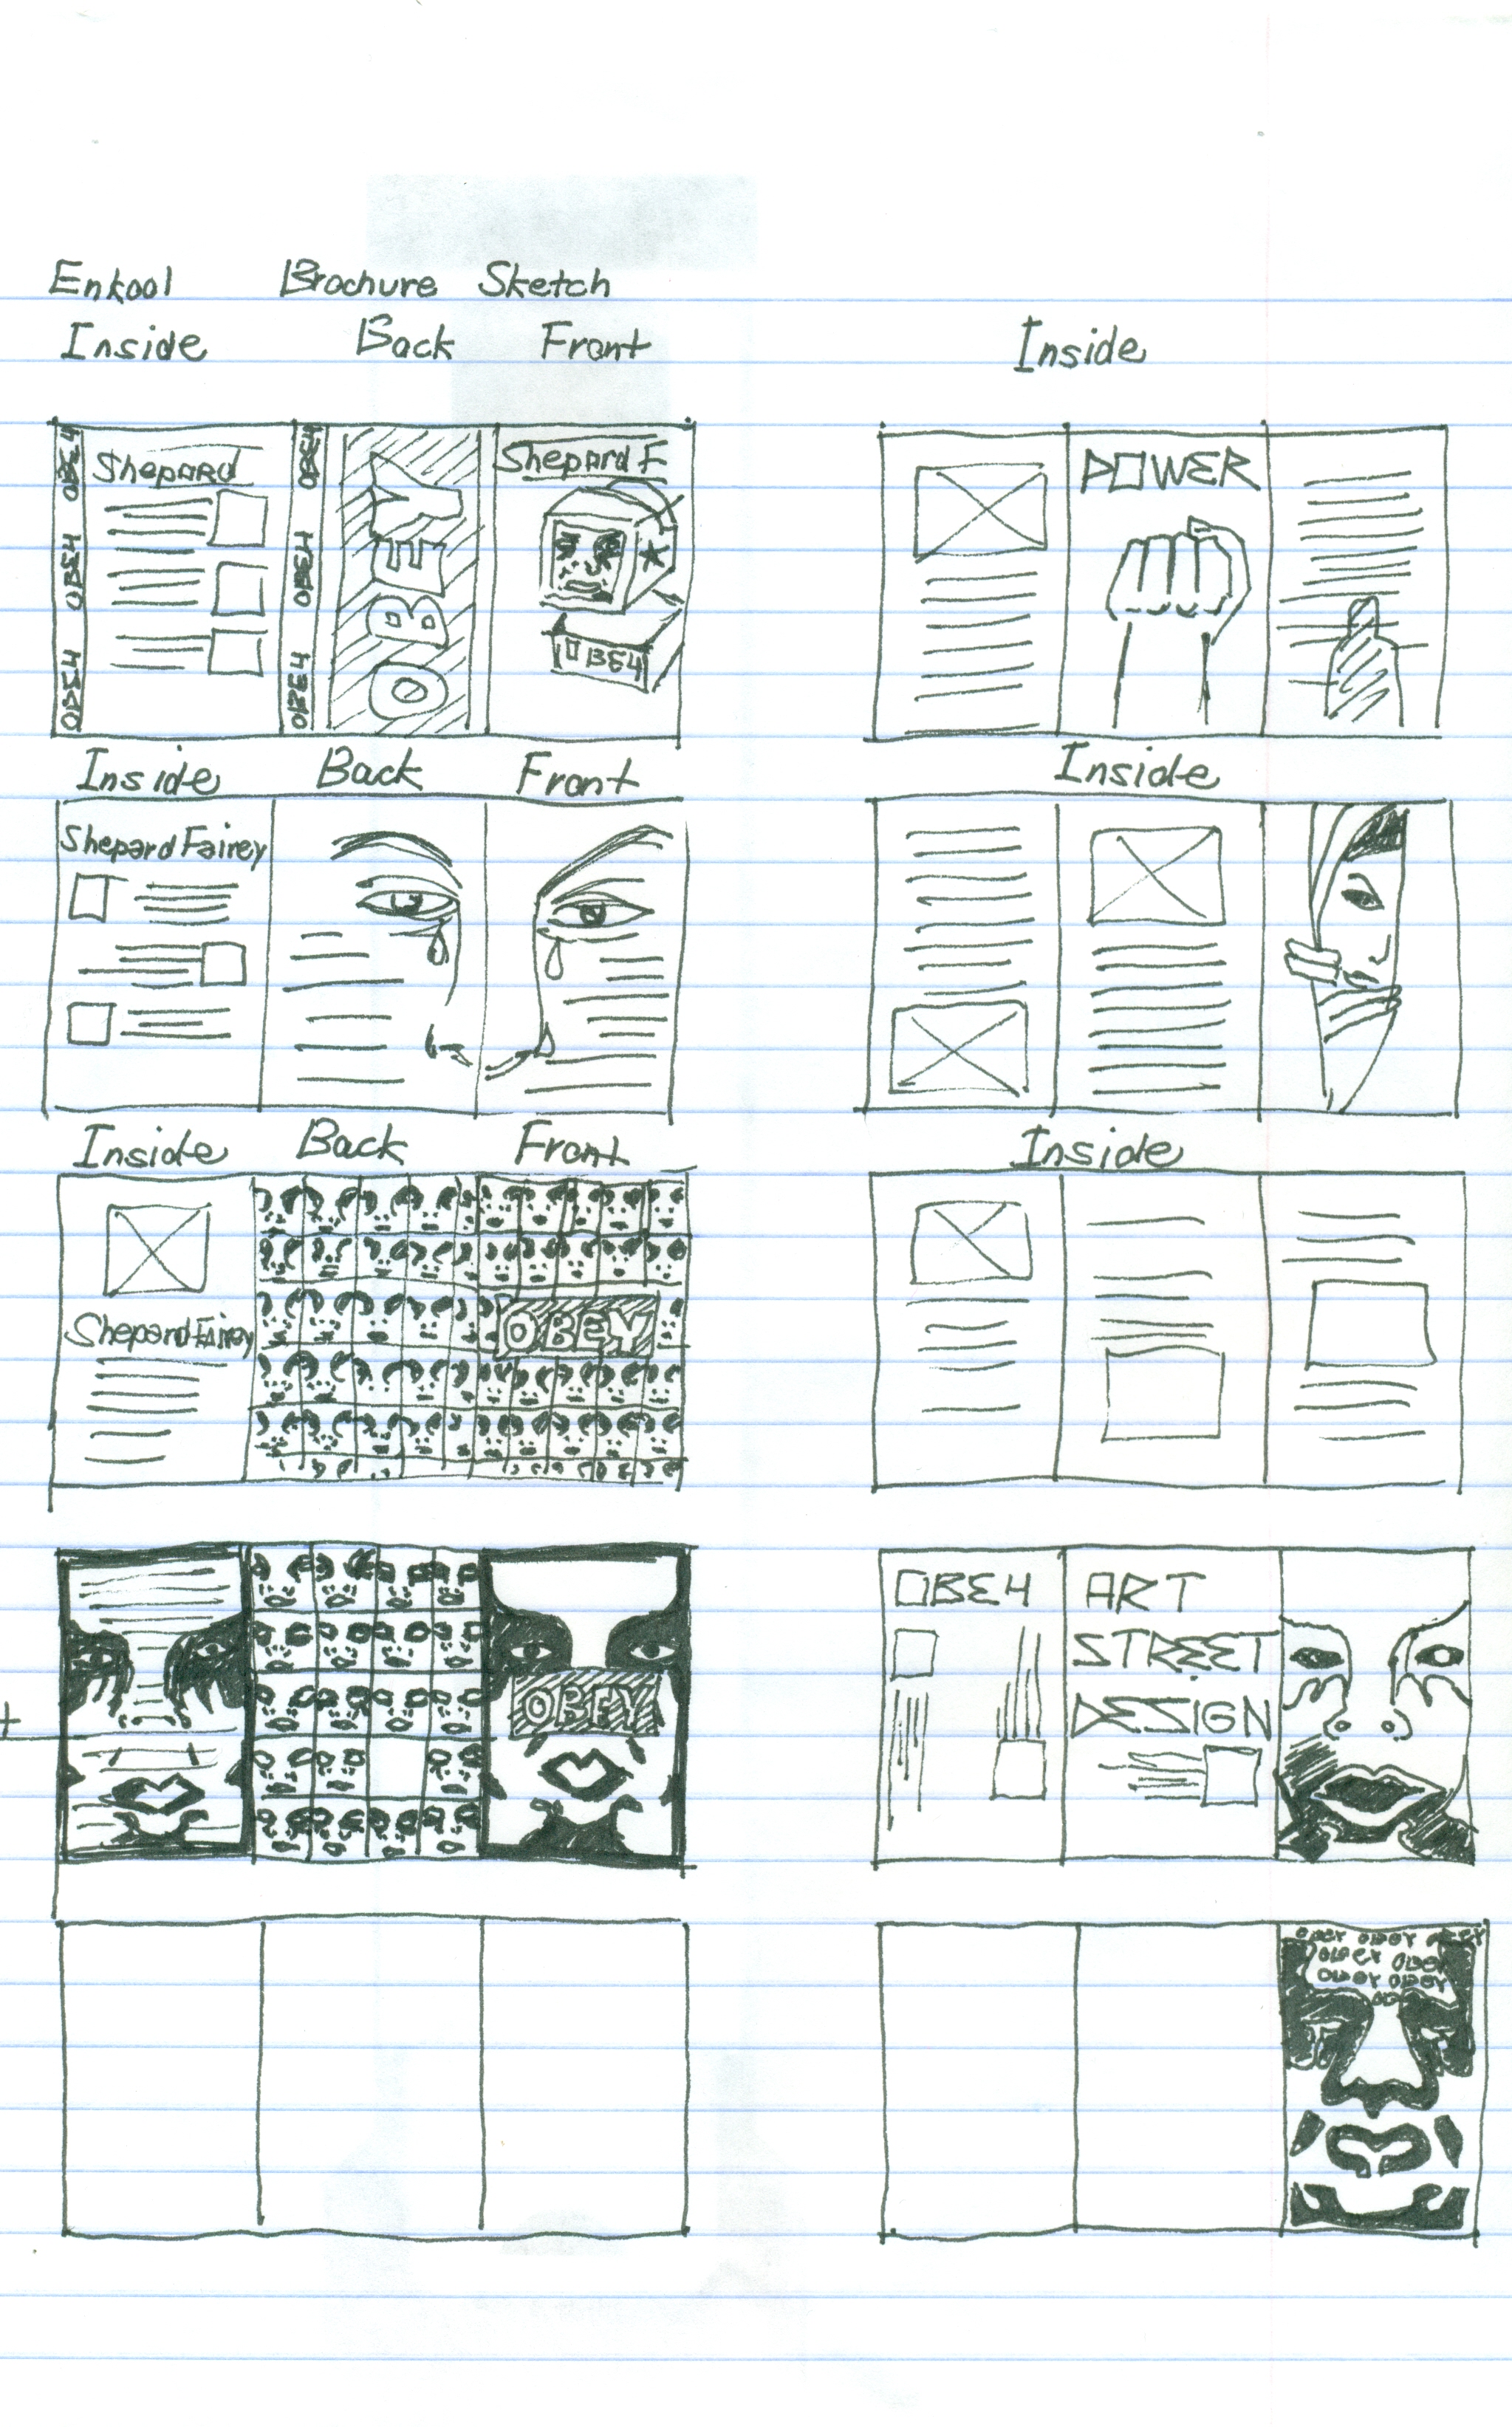 Enkool Brochure Sketch
Inside Back Front Inside
OBE4 OBE4 OBE4
Shepard
OBE4 OBE4 OBE4
OBEY
Shepard F
OBE4
POWER
Inside Back Front Inside
Shepard Fairey
Inside Back Front Inside
Shepard Fairey
OBEY
OBEY
OBE4
ART
STREET
DESIGN
OBEY OBEY OBEY
OBEY OBEY
OBEY OBEY